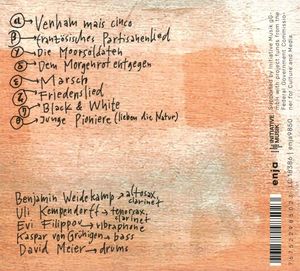 ① Venham mais cinco
② französisches Partisanenlied
③ Die Moorsoldaten
④ Dem Morgenrot entgegen
⑤ Marsch
⑥ Friedenslied
⑦ Black & White
⑧ Junge Pioniere (lieben die Natur)
Benjamin Weidekamp → altosax, clarinet
Uli Kempendorff → tenorsax, clarinet
Evi Filippou → vibraphone
Kaspar von Grünigen → bass
David Meier → drums
Supported by Initiative Musik gGmbH
with project funds from the
Federal Government Commissioner
for Culture and Media
INITIATIVE MUSIK
enja
enja9850